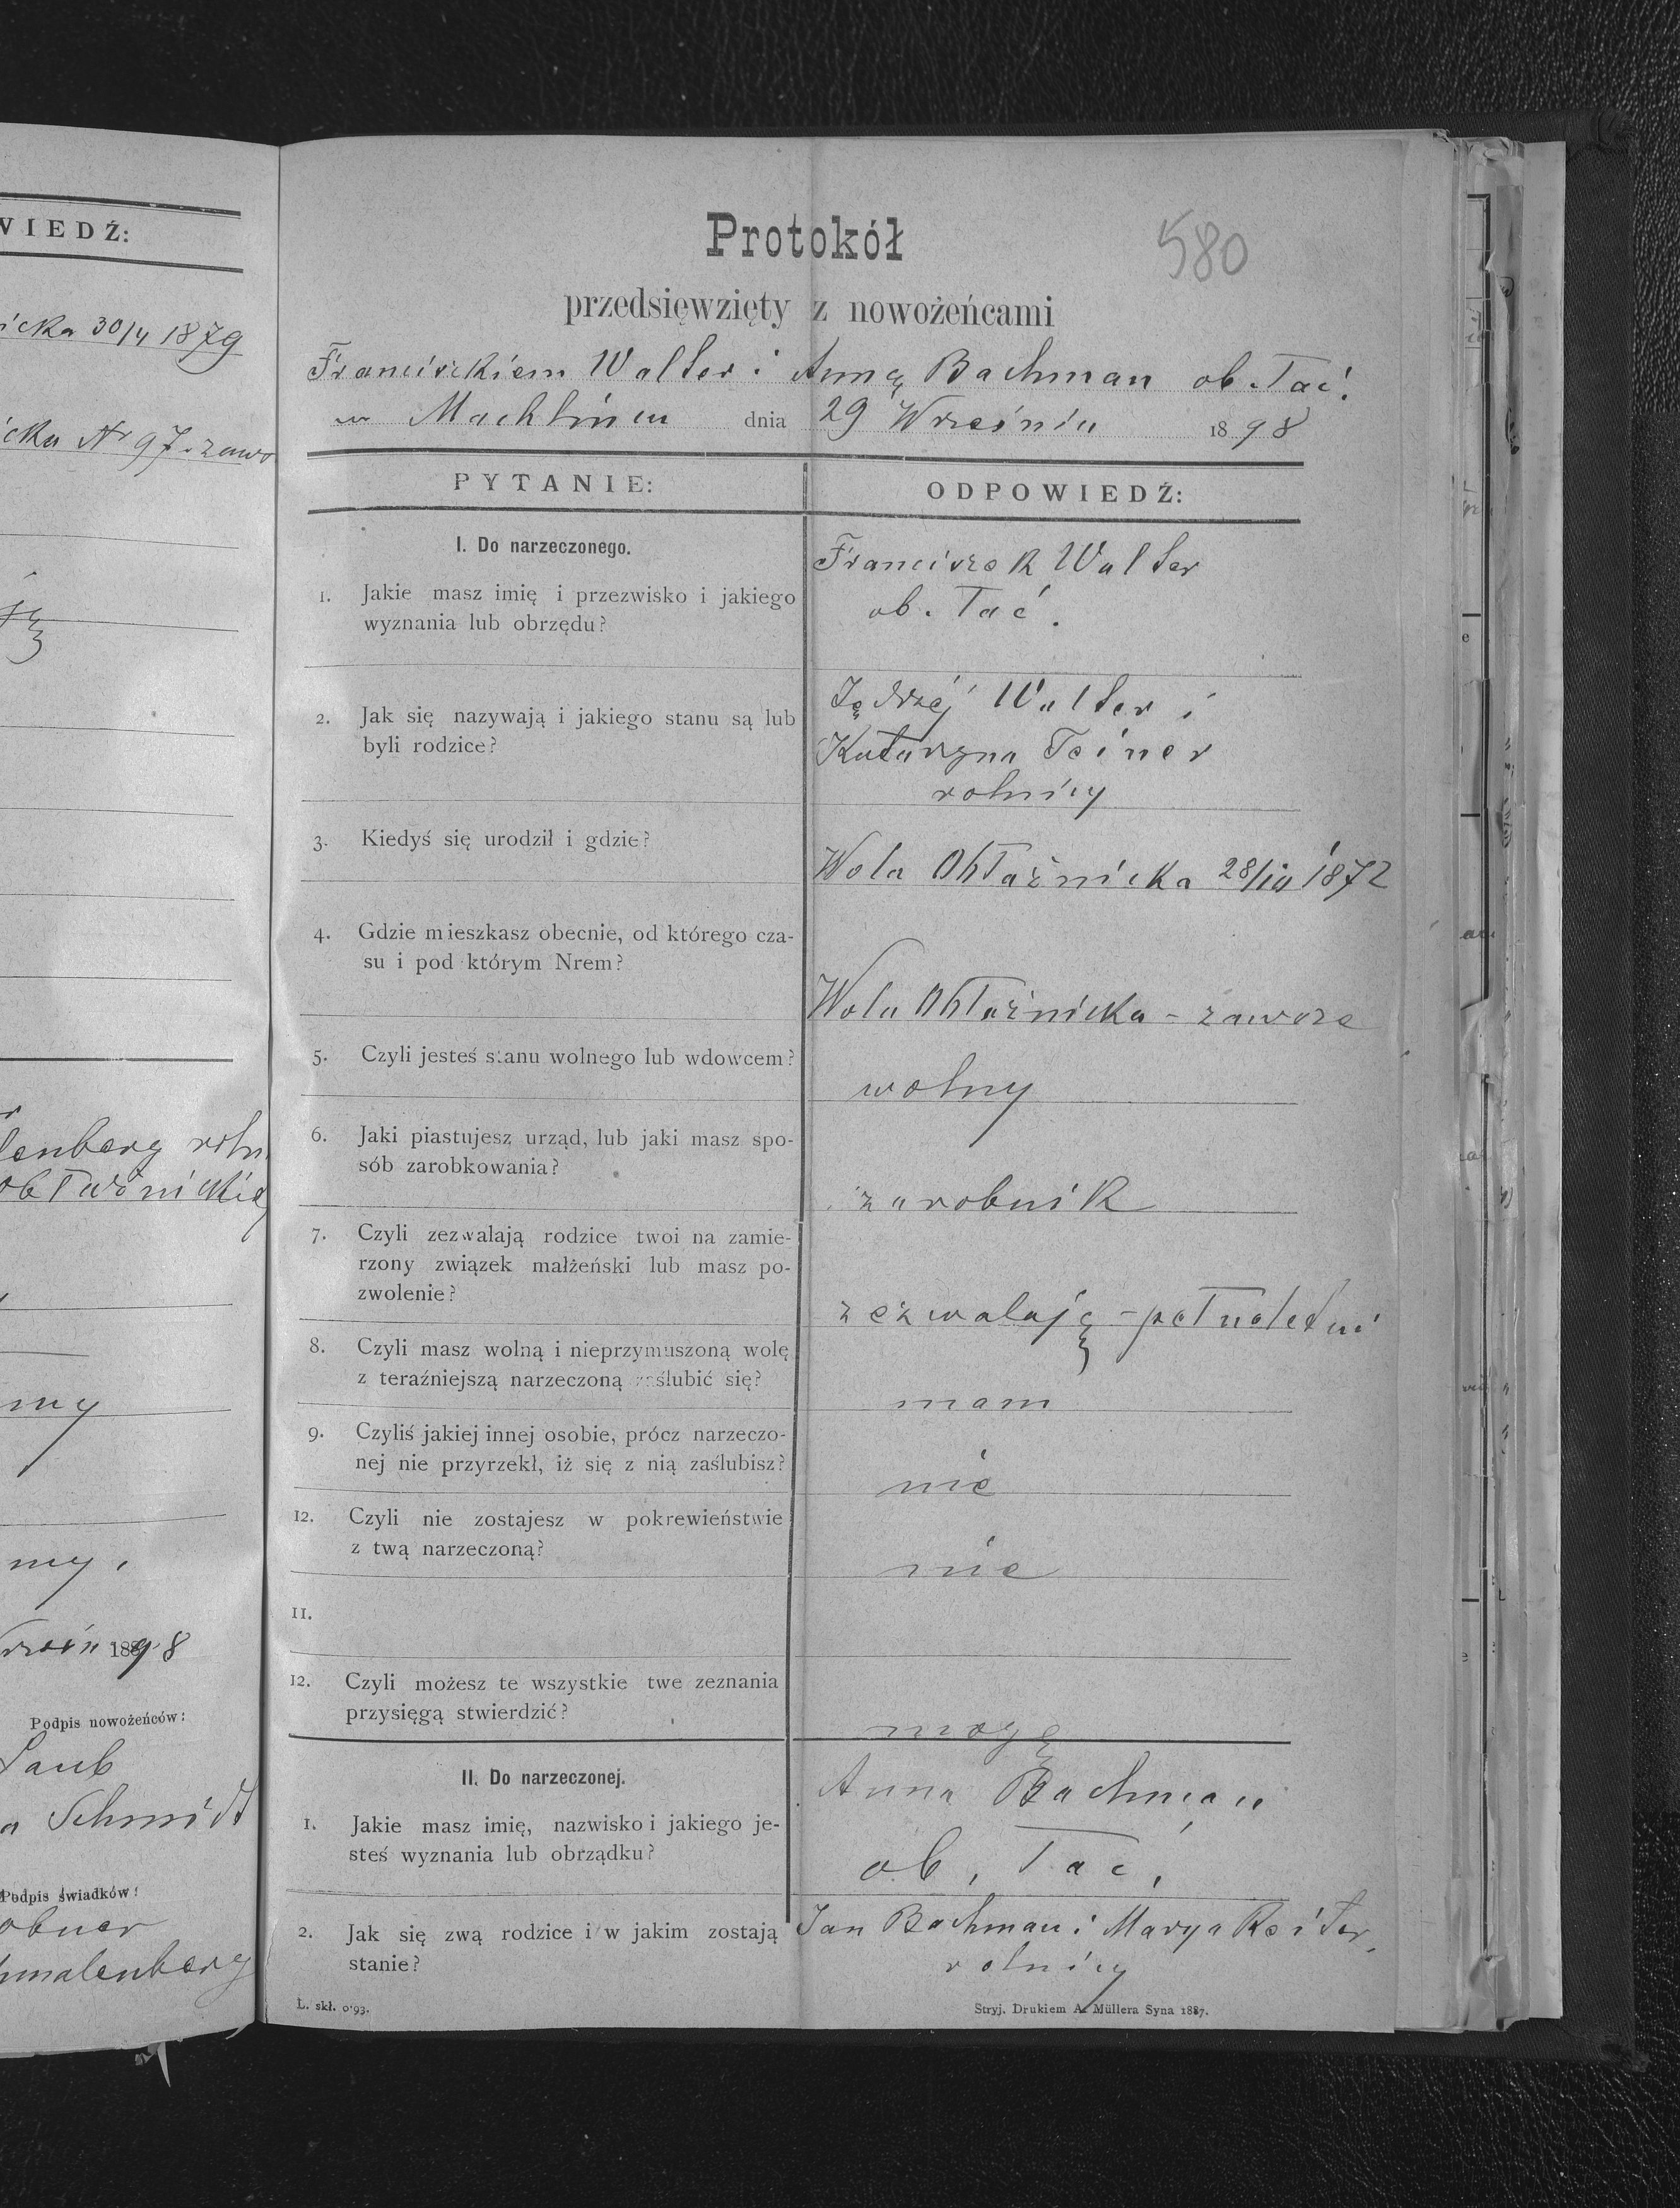 WIEDŹ:
icka 30/4 1879
icka Nr 97. zaw
lenberg roln
obłaźnickiej
my
my,
18898
Podpis nowożeńców:
Laub
a Schmidt
Podpis świadków:
obner
hmalenberg
Protokół
580
przedsięwzięty z nowożeńcami
Franciszkiem Walter i Anną Bachman ob. łać.
w Machlińcu dnia 29 Wrześniu 1898
PYTANIE:
ODPOWIEDŹ:
I. Do narzeczonego.
1. Jakie masz imię i przezwisko i jakiego
wyznania lub obrzędu?
Franciszek Walter
ob. łać.
2. Jak się nazywają i jakiego stanu są lub
byli rodzice?
Jędrzej Walter i
Katarzyna Teiner
rolnicy
3. Kiedyś się urodził i gdzie?
Wola Obłaźnicka 28/10 1872
4. Gdzie mieszkasz obecnie, od którego cza-
su i pod którym Nrem?
Wola Obłaźnicka - zawsze
5. Czyli jesteś stanu wolnego lub wdowcem?
wolny
6. Jaki piastujesz urząd, lub jaki masz spo-
sób zarobkowania?
zarobnik
7. Czyli zezwalają rodzice twoi na zamie-
rzony związek małżeński lub masz po-
zwolenie?
zezwalają - pełnoletni
8. Czyli masz wolną i nieprzymuszoną wolę
z teraźniejszą narzeczoną zaślubić się?
mam
9. Czyliś jakiej innej osobie, prócz narzeczo-
nej nie przyrzekł, iż się z nią zaślubisz?
nie
12. Czyli nie zostajesz w pokrewieństwie
z twą narzeczoną?
nie
11.
12. Czyli możesz te wszystkie twe zeznania
przysięgą stwierdzić?
mogę
II. Do narzeczonej.
1. Jakie masz imię, nazwisko i jakiego je-
steś wyznania lub obrządku?
Anna Bachman
ob, łac,
2. Jak się zwą rodzice i w jakim zostają
stanie?
Jan Bachman i Marya Reiter,
rolnicy
L. skł. 0'93.
Stryj. Drukiem A. Müllera Syna 1887.